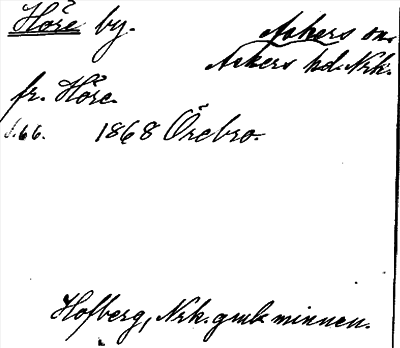 Höre by.
Askers sn.
Askers hd. Nrk.
fr. Höre.
s. 66. 1868 Örebro.
Hofberg, Nrk. gmla minnen.